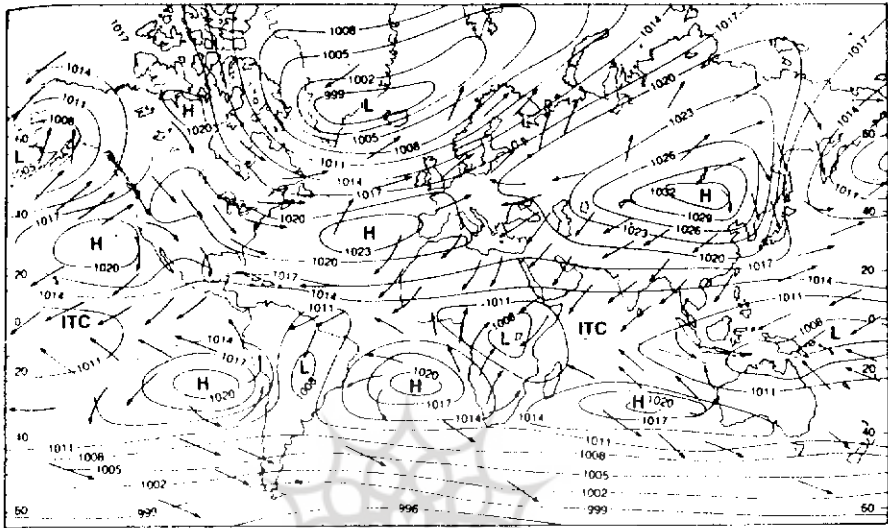 1017 1008 1014 1017
1014 1005 1017
1011 1002 1020
1008 999 L 1014
H 1020 1005 1023
60 1008 60
L 1011 1026
1014 1032 H 1011
1017 1017 1029
40 1020 1026 40
H H 1023
1020 1023 1020
20 1020 1017 1017 20
1014 1014 1014
1011 1011 1011
ITC 1008 ITC 1008
0 L L 0
1011 1014
1017 L 1020 1011
20 H 1020 1008 H 1017 H 1020 20
1014 1014 1017 1014
40 1011 1011 40
1008 1008
1005 1005
1002 1002
60 999 996 999 60